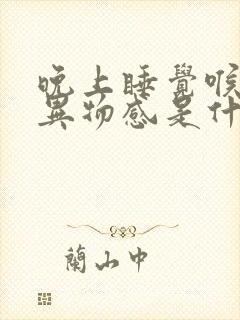 晚上睡覺喉
異物感是什
蘭山中